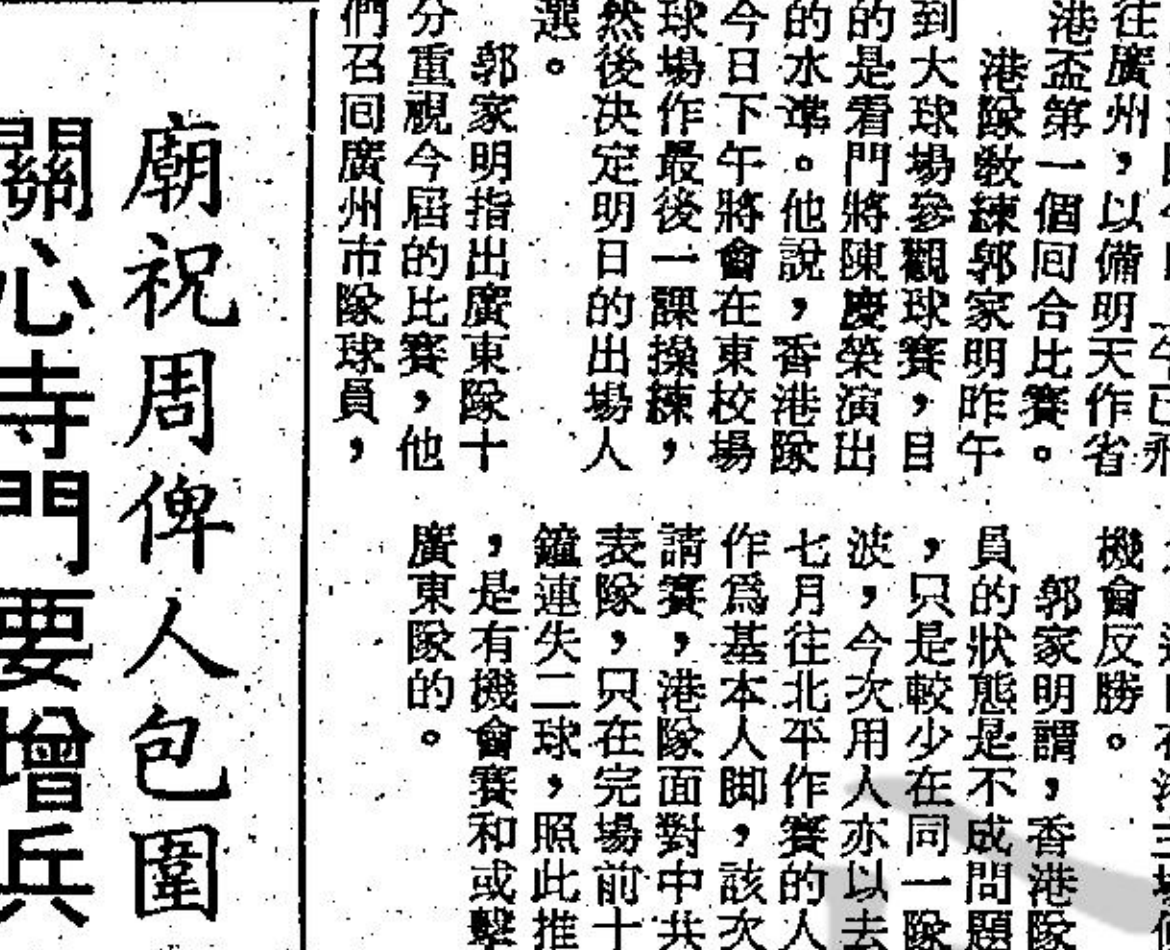 午已飛
往廣州，以備明天作省
港盃第一個回合比賽。
港隊教練郭家明昨午
到大球場參觀球賽，目
的是看門將陳慶榮演出
的水準。他說，香港隊
今日下午將會在東校場
球場作最後一課操練，
然後决定明日的出場人
選。
郭家明指出廣東隊十
分重視今屆的比賽，他
們召回廣州市隊球員，
機會反勝。
郭家明謂，香港隊
員的狀態是不成問題
，只是較少在同一隊
波，今次用人亦以去
七月往北平作賽的人
作爲基本人脚，該次
請賽，港隊面對中共
表隊，只在完場前十
鐘連失二球，照此推
，是有機會賽和或擊
廣東隊的。
廟祝周俾人包圍
關心寺門要增兵